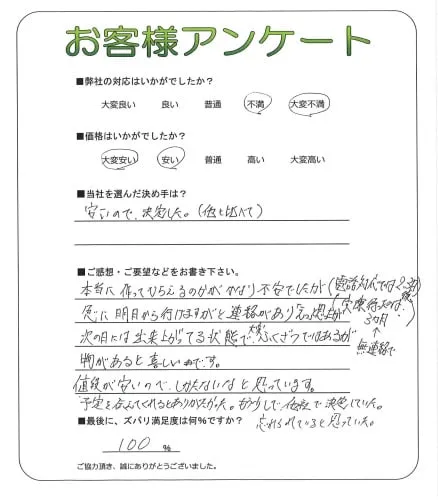 お客様アンケート
■弊社の対応はいかがでしたか？
大変良い 良い 普通 不満 大変不満
■価格はいかがでしたか？
大変安い 安い 普通 高い 大変高い
■当社を選んだ決め手は？
安いので、決定した。(他と比べて)
■ご感想・ご要望などをお書き下さい。
本当に作ってもらえるのかがかなり不安でしたが(電話対応では2、3週間
急に明日から行けますがと連絡があり
3ヵ月
次の日には出来上がってる状態で、ふくざつではあるが
↑
無連絡で
物があると喜しいものです。
値段が安いので、しかたないなと思っています。
予定を合んでくれるとありがたかった。もう少しで、他社で決定していた。
忘れられていると思っていた。
■最後に、ズバリ満足度は何％ですか？
100 %
ご協力頂き、誠にありがとうございました。